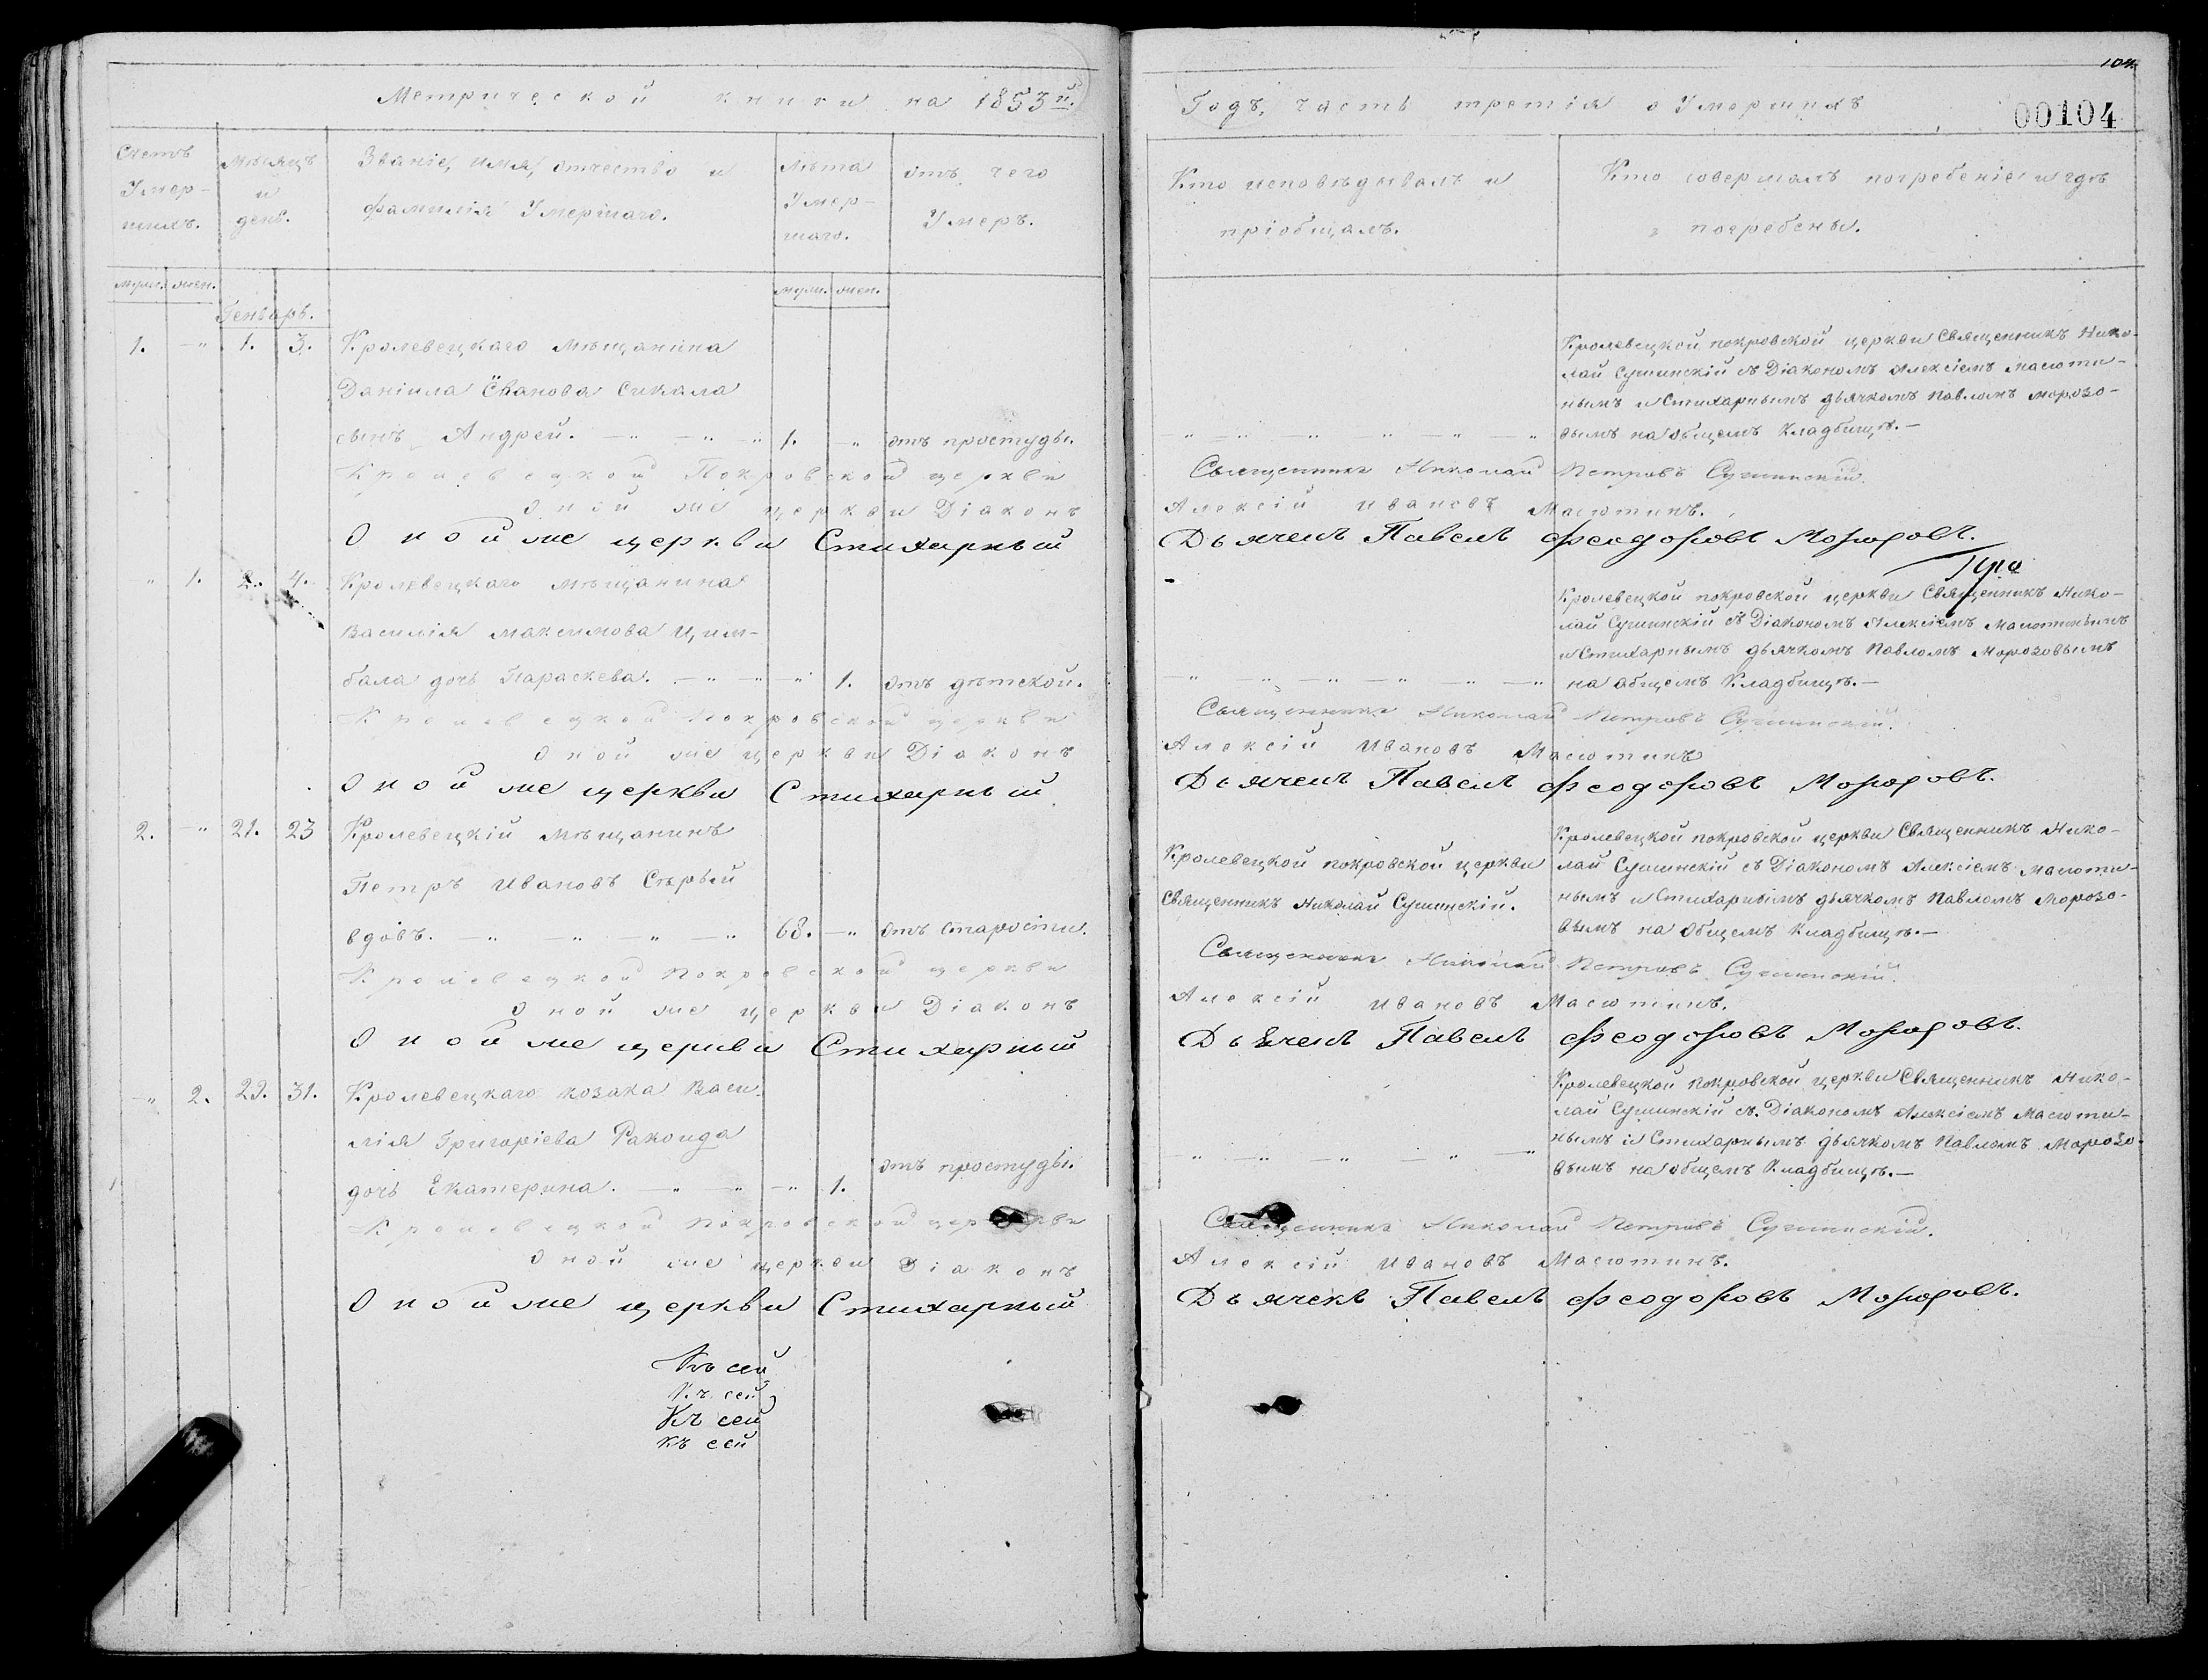 Метрической книги на 1853й.
Счетъ Умер-шихъ.
Мѣсяцъ и день.
Званіе, имя, отчество и фамилія Умершаго.
Лѣта Умер-шаго.
отъ чего Умеръ.
муж. жен.
муж. жен.
Генварь.
1. -„ 1. 3. Кролевецкаго мѣщанина
Даніила Иванова Сикала
сынъ Андрей. -„ -„ -„ 1. -„ отъ простуды.
Кролевецкой Покровской церкви
Оной же церкви Діаконъ
Оной же церкви Стихарный
„ 1. 2. 4. Кролевецкаго мѣщанина
Василія Максимова Цим-
бала дочь Параскева. -„ -„ -„ 1. отъ дѣтской.
Кролевецкой Покровской церкви
Оной же церкви Діаконъ
Оной же церкви Стихарный
2. -„ 21. 23 Кролевецкій мѣщанинъ
Петръ Ивановъ Сѣрый
вдовъ. -„ -„ -„ -„ 68. -„ отъ старости.
Кролевецкой Покровской церкви
Оной же церкви Діаконъ
Оной же церкви Стихарный
-„ 2. 29. 31. Кролевецкаго козака Васи-
лія Григоріева Ракоида
дочь Екатерина. -„ -„ -„ 1. отъ простуды.
Кролевецкой Покровской церкви
Оной же церкви Діаконъ
Оной же церкви Стихарный
Къ сей
Къ сей
Къ сей
къ сей
104
00104
Годъ, часть третія о Умершихъ
Кто исповѣдывалъ и
пріобщалъ.
Кто совершалъ погребеніе и гдѣ
погребены.
Кролевецкой покровской церкви Священникъ Нико-
лай Сушинскій съ Діакономъ Алексіемъ Масюти-
нымъ и Стихарнымъ дьячкомъ Павломъ Морозо-
„ -„ -„ „ -„ -„ вымъ на общемъ Кладбищѣ.-
Священникъ Николай Петровъ Сушинскій.
Алексій Ивановъ Масютинъ.
Дьячекъ Павелъ Феодоровъ Морозовъ.
Кролевецкой покровской церкви Священникъ Нико-
лай Сушинскій съ Діакономъ Алексіемъ Масютинымъ
и Стихарнымъ дьячкомъ Павломъ Морозовымъ
„ -„ -„ -„ -„ -„ на общемъ Кладбищѣ.-
Священникъ Николай Петровъ Сушинскій.
Алексій Ивановъ Масютинъ
Дьячекъ Павелъ Феодоровъ Морозовъ.
Кролевецкой покровской церкви
Священникъ Николай Сушинскій.
Кролевецкой покровской церкви Священникъ Нико-
лай Сушинскій съ Діакономъ Алексіемъ Масюти-
нымъ и Стихарнымъ дьячкомъ Павломъ Морозо-
вымъ на общемъ Кладбищѣ.-
Священникъ Николай Петровъ Сушинскій.
Алексій Ивановъ Масютинъ.
Дьячекъ Павелъ Феодоровъ Морозовъ.
Кролевецкой покровской церкви Священникъ Нико-
лай Сушинскій съ Діакономъ Алексіемъ Масюти-
нымъ и Стихарнымъ дьячкомъ Павломъ Морозо-
„ -„ -„ „ -„ -„ вымъ на общемъ Кладбищѣ.-
Священникъ Николай Петровъ Сушинскій.
Алексій Ивановъ Масютинъ.
Дьячекъ Павелъ Феодоровъ Морозовъ.